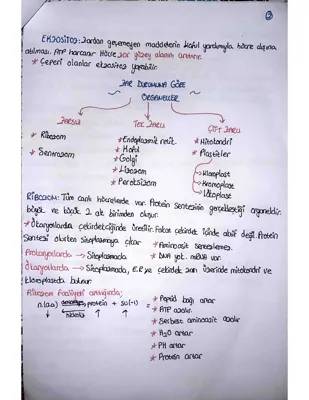 EKZOSİTOZ: Zardan geçemeyen maddelerin koful yardımıyla hücre dışına
atılması. ATP harcanır. Hücre zar yüzey alanını arttırır.
* Çeperi olanlar ekzositoz yapabilir.
ZAR DURUMUNA GÖRE
ORGANELLER
ZARSIZ
TEK ZARLI
ÇİFT ZARLI
* Ribozom
* Sentrozom
* Endoplazmik retik.
* Koful
* Golgi
* Lizozom
* Peroksizom
* Mitokondri
* Plastitler
Kloroplast
Kromoplast
Lökoplast
RİBOZOM: Tüm canlı hücrelerde var. Protein sentezinin gerçekleştiği organeldir.
büyük ve küçük 2 alt birimden oluşur.
* Ökaryotlarda çekirdekçiğinde üretilir. Fakat çekirdek içinde aktif değil. Protein
Sentezi olurken sitoplazmaya çıkar
* Aminoasit sentezlemez.
Prokaryotlarda → Sitoplazmada
* DNA yok. mRNA var.
Ökaryotlarda → Sitoplazmada, E.R ve çekirdek zarı üzerinde mitokondri ve
kloroplastta bulunur
Ribozom faaliyeti arttığında;
n.(a.a) protein + su(n-1)
* Peptid bağı artar
* ATP azalır
* Serbest aminoasit azalır
* H2O artar
* PH artar
* Protein artar